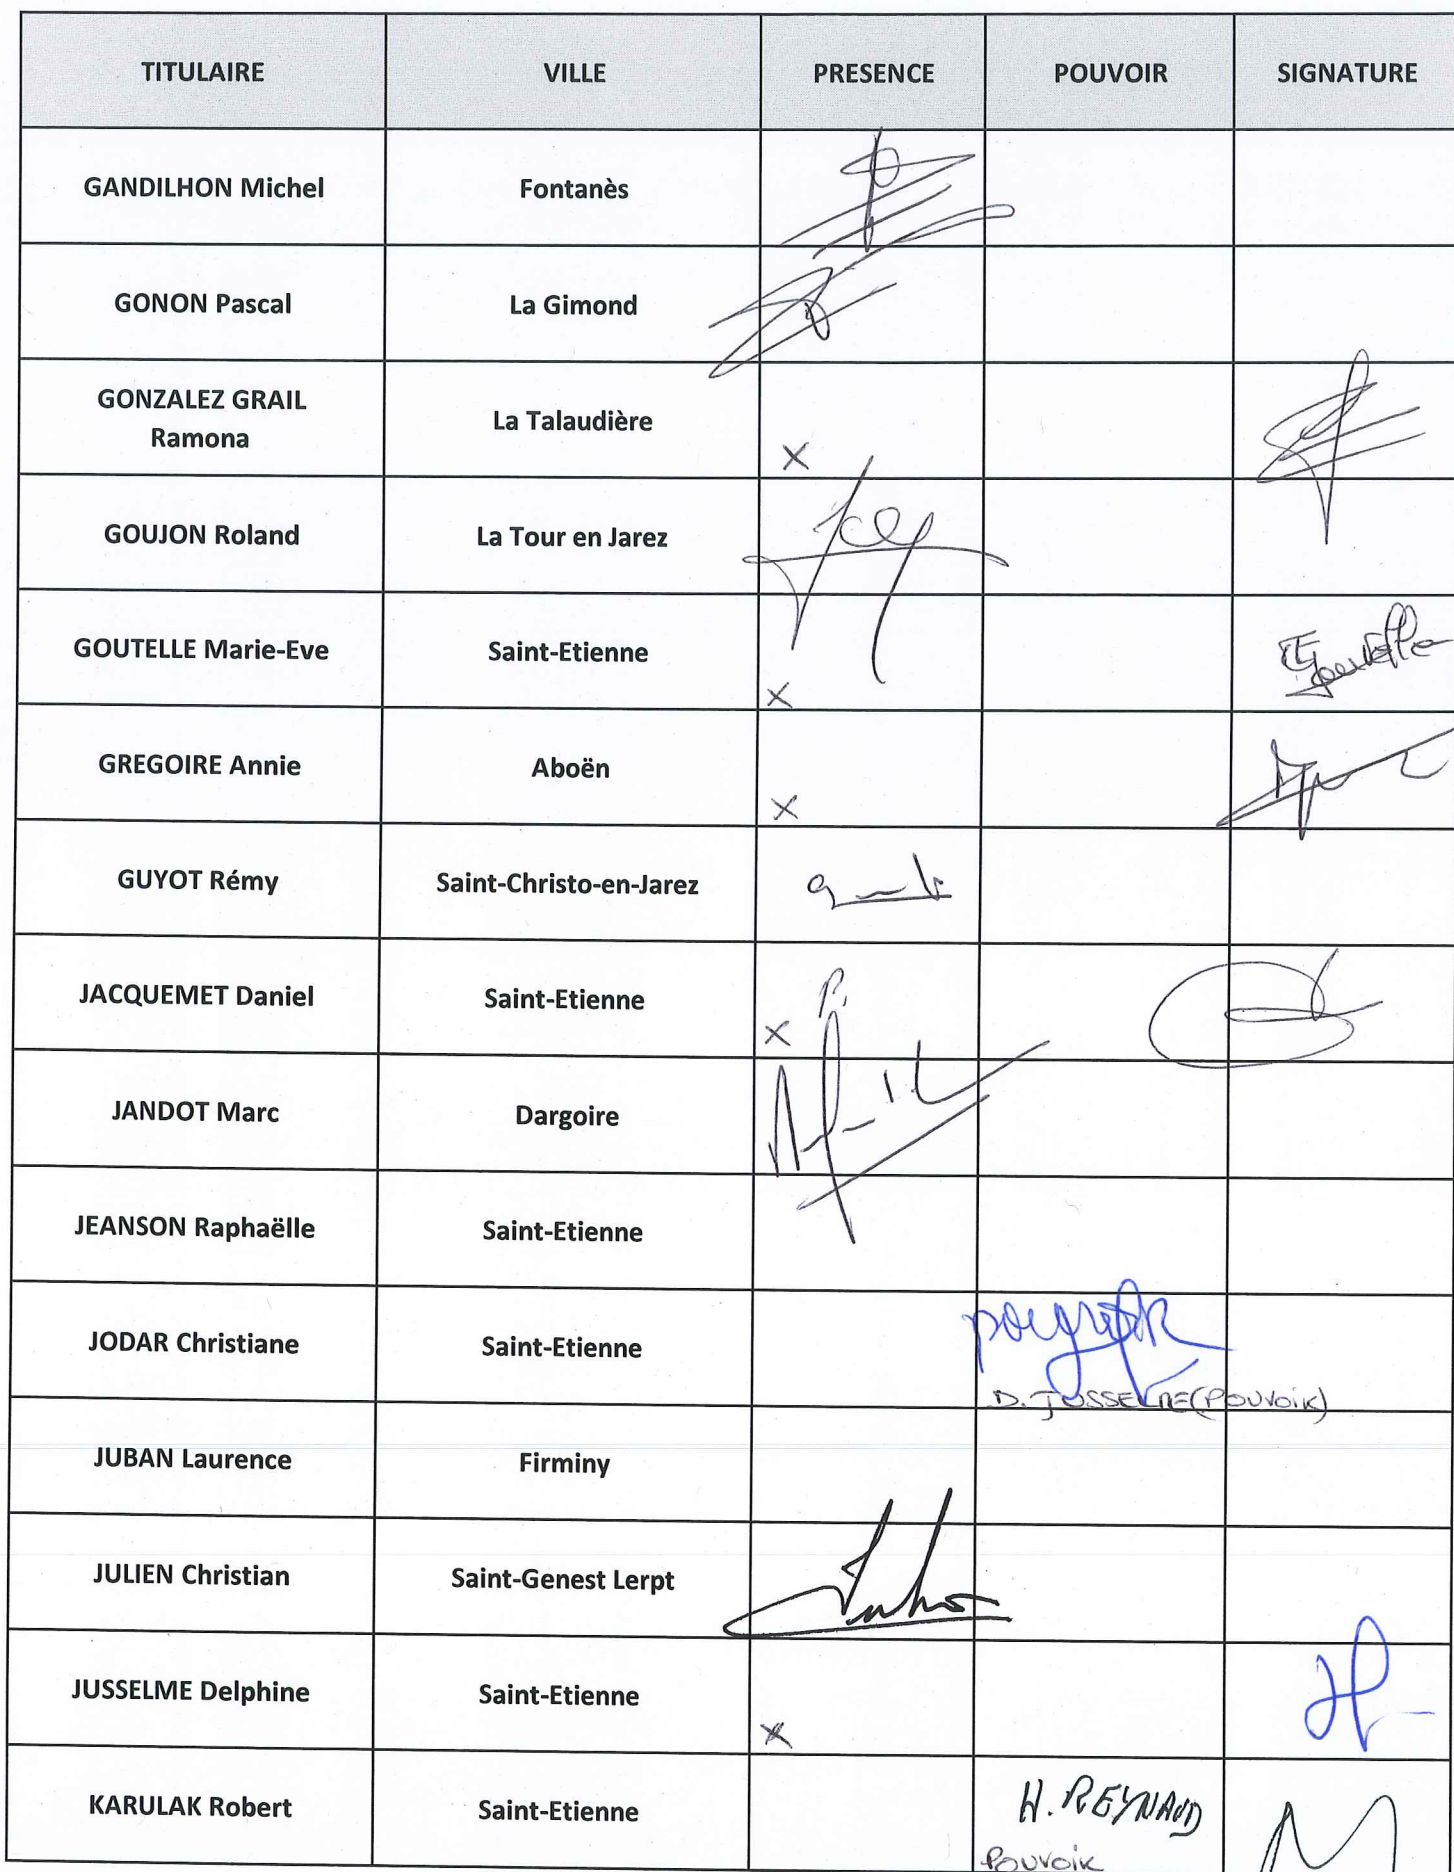 TITULAIRE VILLE PRESENCE POUVOIR SIGNATURE
GANDILHON Michel Fontanès
GONON Pascal La Gimond
GONZALEZ GRAIL
Ramona La Talaudière X
GOUJON Roland La Tour en Jarez
GOUTELLE Marie-Eve Saint-Etienne X
GREGOIRE Annie Aboën X
GUYOT Rémy Saint-Christo-en-Jarez
JACQUEMET Daniel Saint-Etienne X
JANDOT Marc Dargoire
JEANSON Raphaëlle Saint-Etienne
JODAR Christiane Saint-Etienne
D. JUSSELME (POUVOIR)
JUBAN Laurence Firminy
JULIEN Christian Saint-Genest Lerpt
JUSSELME Delphine Saint-Etienne X
KARULAK Robert Saint-Etienne H. REYNAUD
Pouvoir